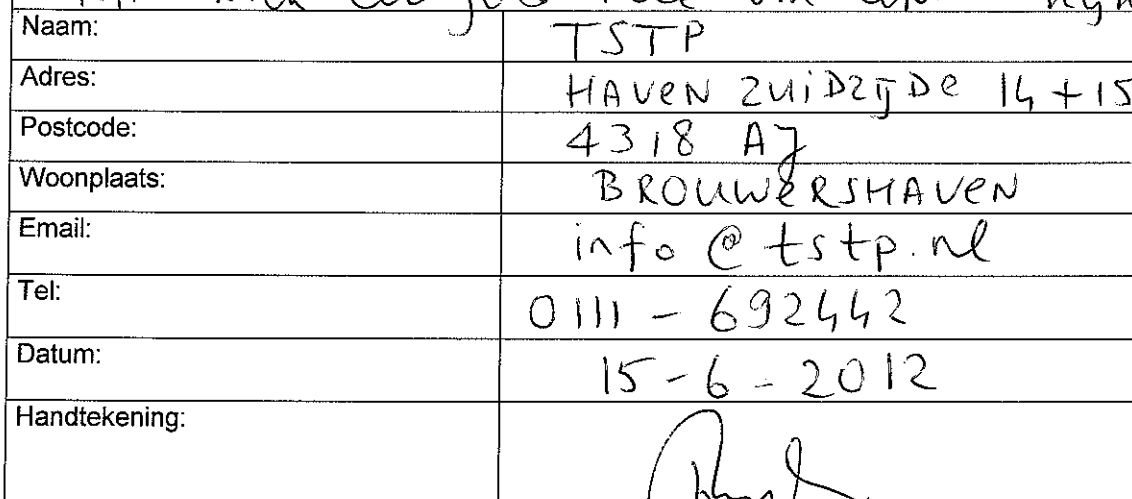 Naam: TSTP
Adres: HAVEN ZUIDZIJDE 14 + 15
Postcode: 4318 AJ
Woonplaats: BROUWERSHAVEN
Email: info @ tstp.nl
Tel: 0111 - 692442
Datum: 15 - 6 - 2012
Handtekening: